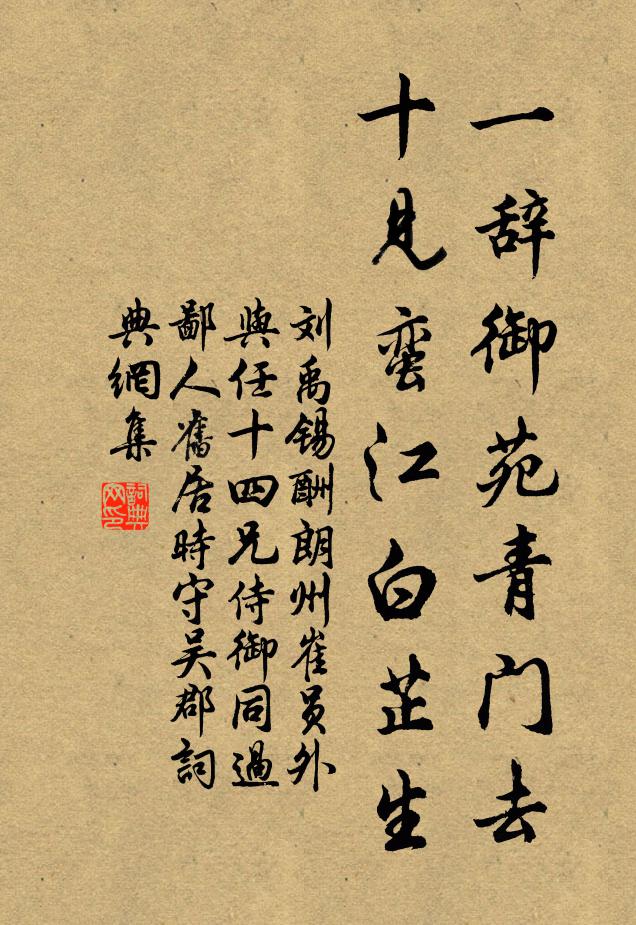 一辞御苑青门去
十见蛮江白芷生
刘禹锡酬朗州崔员外
與任十四兄侍御同過
鄙人舊居時守吴郡詞
典網集
詞典
网印